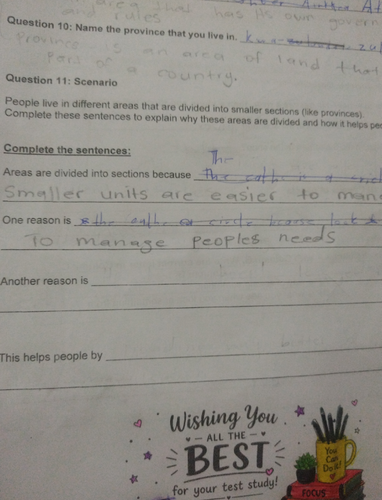 area that has its own govern
and rules
Question 10: Name the province that you live in.
Province is an area of land that
Part of a country.
Question 11: Scenario
People live in different areas that are divided into smaller sections (like provinces).
Complete these sentences to explain why these areas are divided and how it helps pe
Complete the sentences:
The
Areas are divided into sections because The
Smaller units are easier to man
One reason is the
To manage peoples needs
Another reason is
This helps people by
Wishing You
ALL THE
BEST
for your test study!
You
Can
Do it!
FOCUS